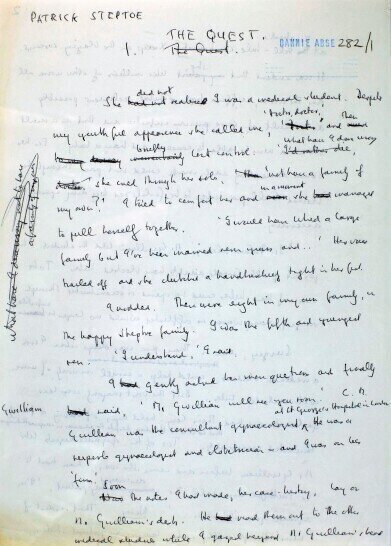 PATRICK STEPTOE
THE QUEST.
DANNIE ABSE 282/1
1. The Quest.
did not
She had not realised I was a medical student. Despite
my youthful appearance she called me, 'Doctor, doctor,' and then
what have I done wrong
briefly lost control.
she cried through her sobs. 'not have a family of
my own?' I tried to comfort her and in a moment she managed
to pull herself together. 'I would have liked a large
family but I've been married seven years and...' Her voice
trailed off and she clutched a handkerchief tight in her fist.
I nodded. There were eight in my own family, in
the happy Steptoe family. I was the fifth and youngest
son. 'I understand,' I said.
I gently asked her more questions and finally
Gwillim
said, 'Mr. Gwillim will see you soon.' C. M.
at St George's Hospital in London
Gwillim was the consultant gynaecologist. He was a
superb gynaecologist and obstetrician and I was on his
'firm.'
Soon
the notes I had made, her case-history, lay on
Mr. Gwillim's desk. He read them out to the other
medical students while I gazed beyond Mr. Gwillim's head